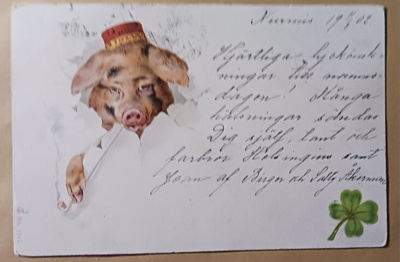 Nurmis 19 02
Hjärtliga lyckönsk-
ningar till namns-
dagen! Många
hälsningar sändas
Dig själf, tant och
farbror Helsingius samt
af Birger och Sally Åkerman